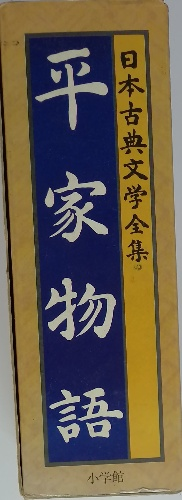 日本古典文学全集
平家物語
小学館